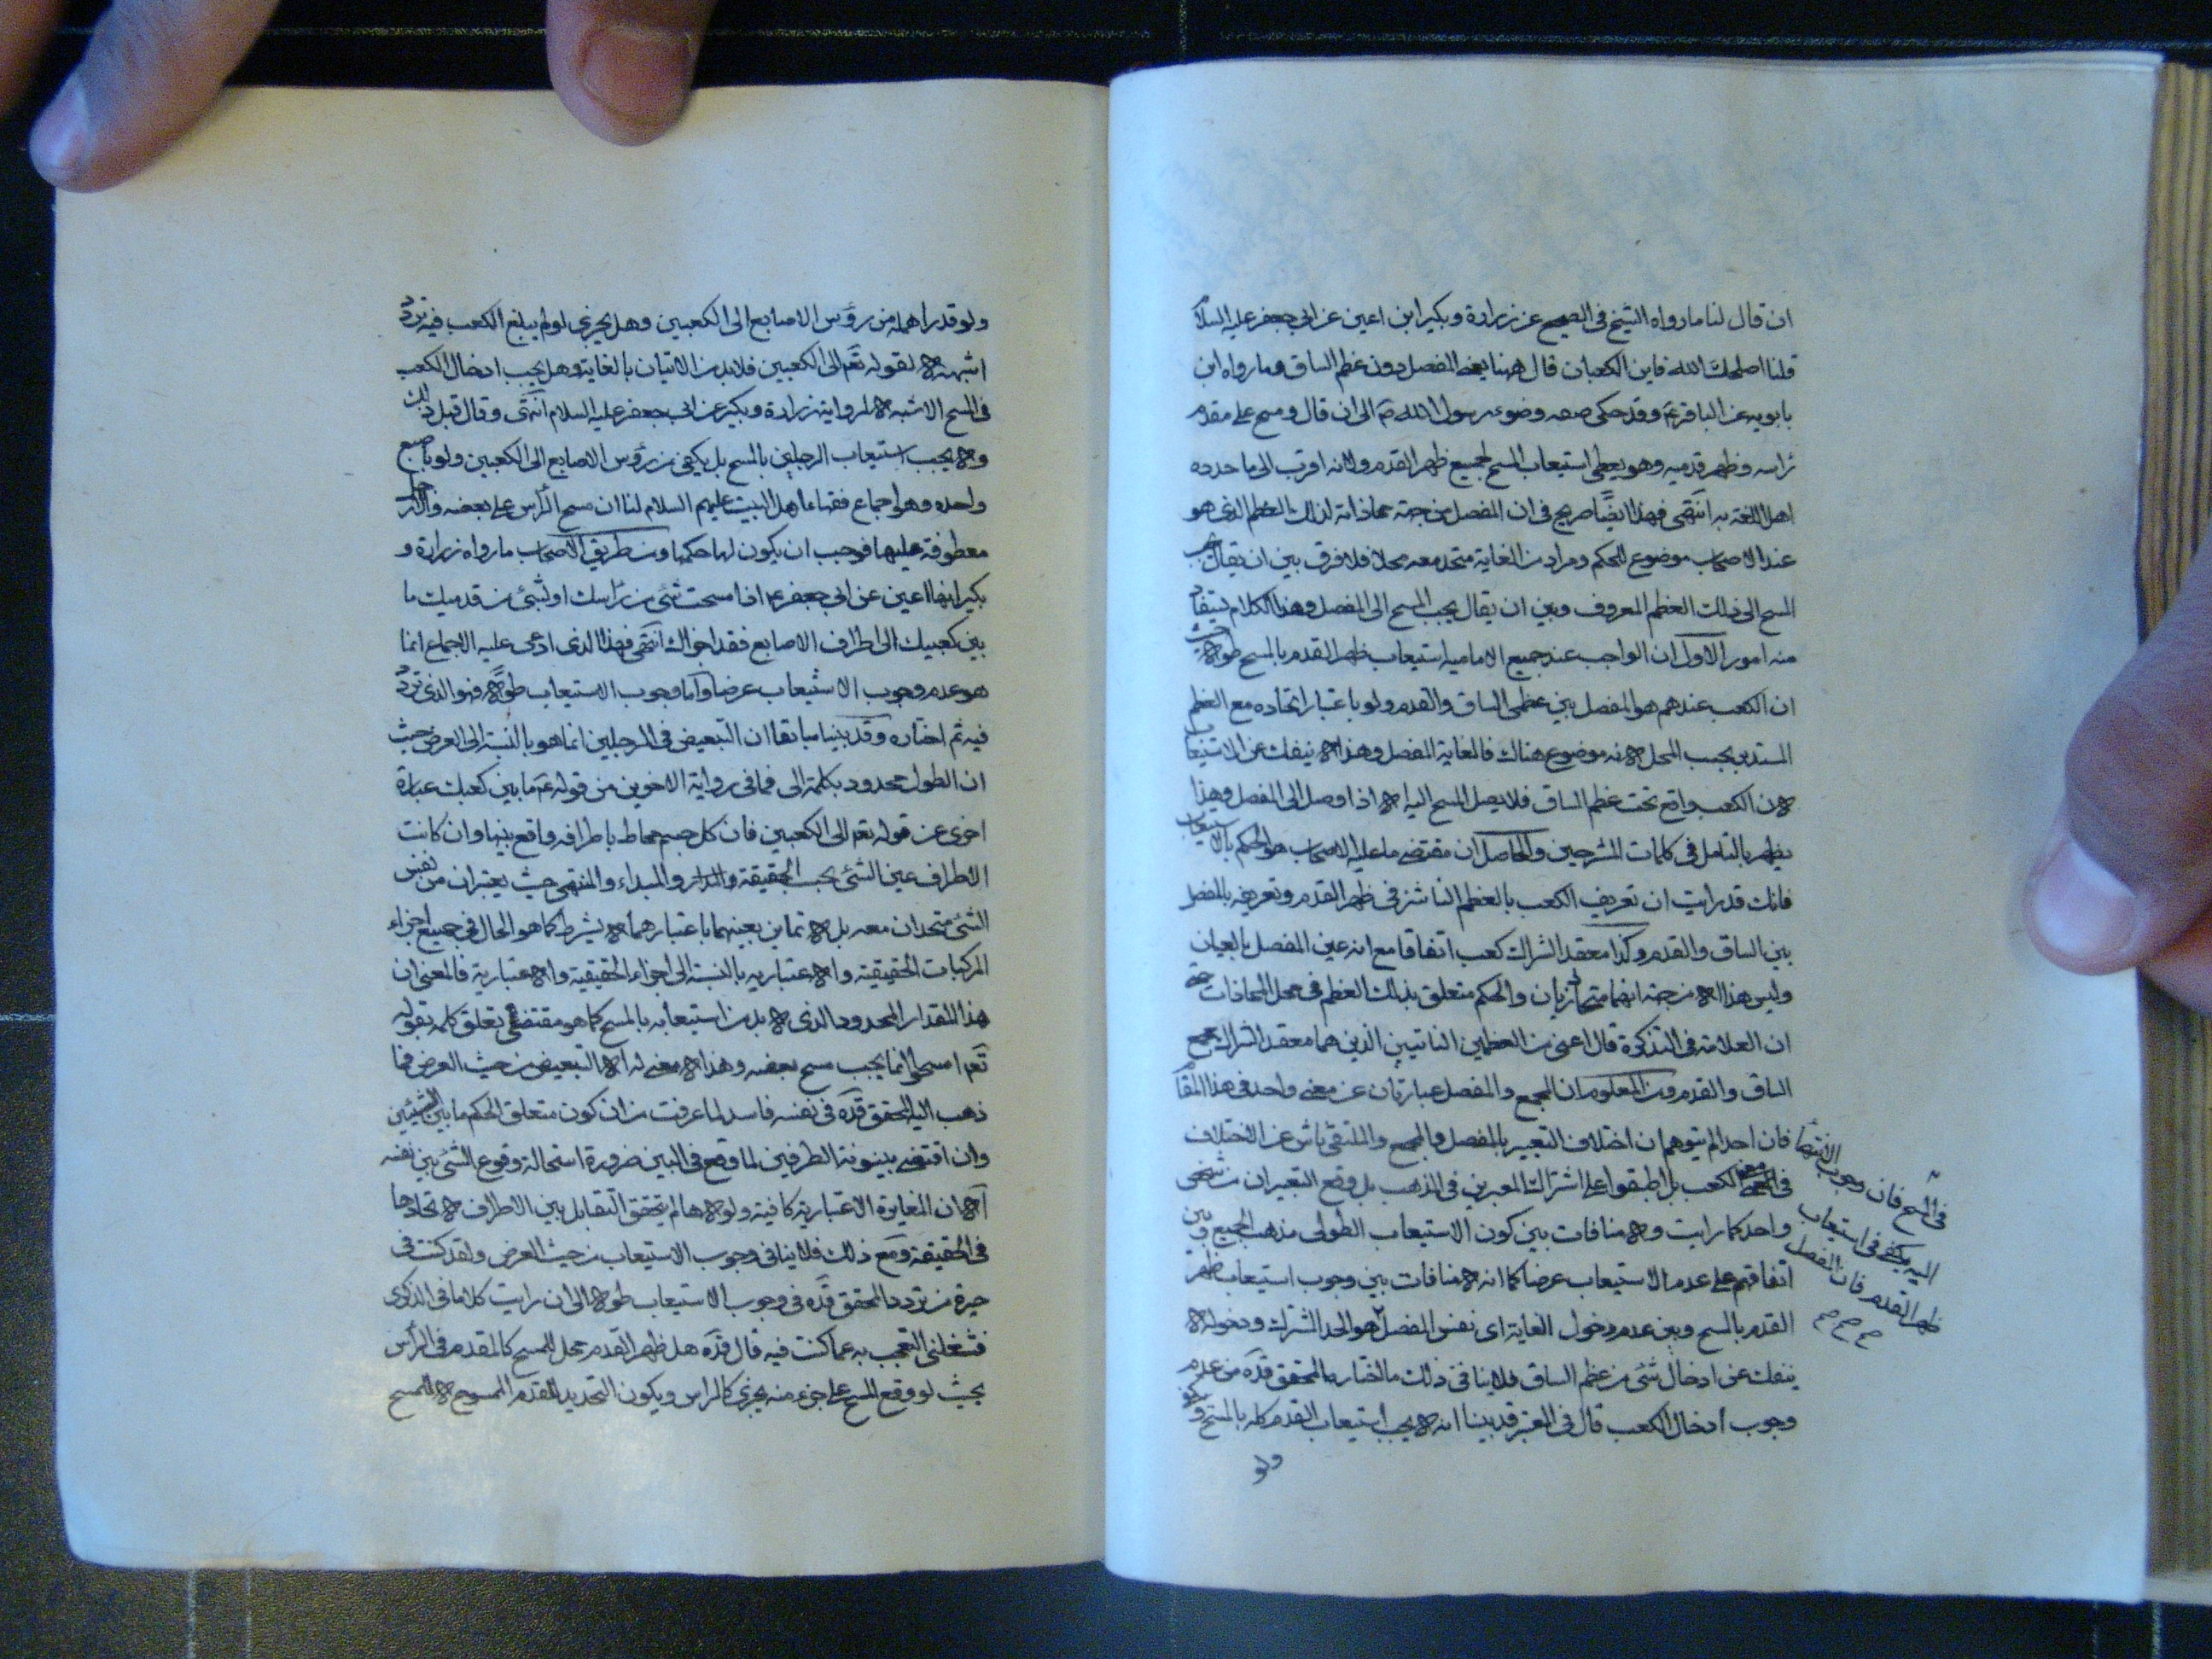 ان قال لنا ما رواه الشيخ فى الصحيح عن زرارة و بكير ابن اعين عن ابى جعفر عليه السلام
قلنا اصلحك الله فاين الكعبان قال ههنا يعنى المفصل دون عظم الساق و ما رواه ابن
بابويه عن الباقر عَ و قد حكى صفه وضوء رسول الله صَ الى ان قال و مسح على مقدم
راسه و ظهر قدميه و هو يعطى استيعاب المسح لجميع ظهر القدم و لانه اقرب الى ما حدده
اهل اللغة به انتهى فهذا ايضًا صريح فى ان المفصل من جهة محاذاته لذلك العظم الذى هو
عند الاصحاب موضوع للحكم و مراد من الغاية متحد معه محلا فلا فرق بين ان يقال يجب
المسح الى ذلك العظم المعروف و بين ان يقال يجب المسح الى المفصل و هذا الكلام يستفاد
منه امور الاول ان الواجب عند جميع الامامية استيعاب ظهر القدم بالمسح طولا حيث
ان الكعب عندهم هو المفصل بين عظمى الساق و القدم و لو باعتبار اتحاده مع العظم
المستدير بحسب المحل لانه موضوع هناك فالغاية المفصل و هذا لا ينفك عن الاستيعاب
لان الكعب واقع تحت عظم الساق فلا يصل المسح اليه الا اذا وصل الى المفصل و هذا
يظهر بالتامل فى كلمات المشرحين و الحاصل ان مقتضى ما عليه الاصحاب هو الحكم بالاستيعاب
فانك قد رايت ان تعريف الكعب بالعظم الناشز فى ظهر القدم و تعريفه بالمفصل
بين الساق و القدم و كذا معقد الشراك كعب اتفاقا مع انه عين المفصل بالعيان
و ليس هذا الا من جهة انهما متحاذيان و الحكم متعلق بذلك العظم فى محل المحاذات حتى
ان العلامة فى التذكرة قال اعنى من العظمين الناتيين الذين هما معقد الشراك مجمع
الساق و القدم و من المعلوم ان المجمع و المفصل عبارتان عن معنى واحد فى هذا المقام
فان احدا لم يتوهم ان اختلاف التعبير بالمفصل و المجمع و الملتقى ناش عن الاختلاف
فى معنى الكعب بل اطبقوا على اشتراك المعبرين فى المذهب بل وقع التعبيران من شخص
واحد كما رايت و لا منافات بين كون الاستيعاب الطولى مذهب الجميع و بين
اتفاقهم على عدم الاستيعاب عرضا كما انه لا منافات بين وجوب استيعاب ظهر
القدم بالمسح و بين عدم دخول الغاية اى نفس المفصل هو الحد المشترك و دخوله لا
ينفك عن ادخال شئ من عظم الساق فلا ينافى ذلك ما اختاره المحقق قدَه من عدم
وجوب ادخال الكعب قال فى المعتبر قد بينا انه لا يجب استيعاب القدم كله بالمسح و يكفى
و لو
فى المسح فان وجوب الانتهاء
اليه يكفى فى استيعاب
ظهر القدم فان المفصل
و لو قدر انملة من رؤس الاصابع الى الكعبين و هل يجزى لو لم يبلغ الكعب فيه تردد
اشبهه لا لقوله تعَم الى الكعبين فلا بد من الاتيان بالغاية و هل يجب ادخال الكعب
فى المسح الاشبه لا لرواية زرارة و بكير عن ابى جعفر عليه السلام انتهى و قال قبل ذلك
و لا يجب استيعاب الرجلين بالمسح بل يكفى من رؤس الاصابع الى الكعبين و لو باصبع
واحده و هو اجماع فقهاء اهل البيت عليهم السلام لنا ان مسح الرأس على بعضه و الارجل
معطوفة عليها فوجب ان يكون لها حكمها و من طريق الاصحاب ما رواه زرارة و
بكير ابنا اعين عن ابى جعفر ع اذا مسحت بشئ من راسك او بشئ من قدميك ما
بين كعبيك الى اطراف الاصابع فقد اجزاك انتهى فهذا الذى ادعى عليه الاجماع انما
هو عدم وجوب الاستيعاب عرضا و اما وجوب الاستيعاب طولا فهو الذى تردد
فيه ثم اختاره و قد بينا سابقا ان التبعيض فى الرجلين انما هو بالنسبة الى العرض حيث
ان الطول محدود بكلمة الى فما فى رواية الاخوين من قوله عَ ما بين كعبيك عبارة
اخرى عن قوله تعم الى الكعبين فان كل جسم محاط باطرافه واقع بينها و ان كانت
الاطراف عين الشئ بحسب الحقيقة و المدار و المبداء و المنتهى حيث يعتبران من نفس
الشئ متحدان معه بل لا تماين بعينهما باعتبارهما لا بشرط كما هو الحال فى جميع اجزاء
المركبات الحقيقية و الاعتبارية بالنسبة الى اجزاء الحقيقية و الاعتبارية فالمعنى ان
هذا المقدار المحدود الذى لا بد من استيعابه بالمسح كما هو مقتضى تعلق كلمة بقوله
تعَم امسحوا انما يجب مسح بعضه و هذا لا معنى له الا التبعيض من حيث العرض فما
ذهب اليه المحقق قدَه فى نفسه فاسد لما عرفت من ان كون متعلق الحكم ما بين الشيئين
و ان اقتضى بينونة الطرفين لما وقع فى البين ضرورة استحالة وقوع الشئ بين نفسه
الا ان المغايرة الاعتبارية كافية و لولاها لم يتحقق التقابل بين الاطراف لاتحادها
فى الحقيقة و مع ذلك فلا ينافى وجوب الاستيعاب من حيث العرض و لقد كنت فى
حيرة من تردد المحقق قدَه فى وجوب الاستيعاب طولا الى ان رايت كلاما فى الذكرى
فشغلنى التعجب به عما كنت فيه قال قدَه هل ظهر القدم محل للمسح كالمقدم فى الرأس
بحيث لو وقع المسح على جزء منه يجزى كالراس و يكون التحديد للقدم الممسوح لا للمسح